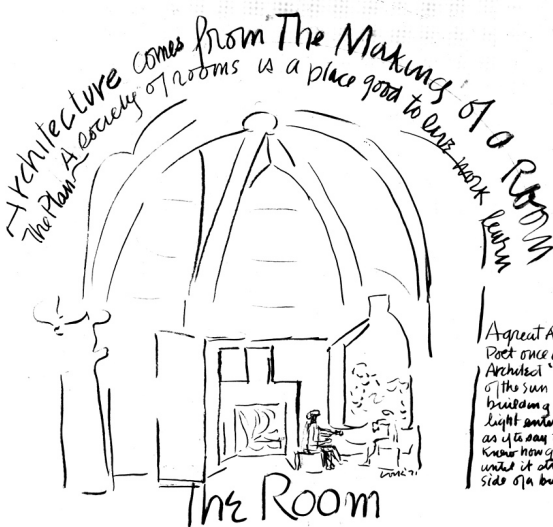 Architecture comes from The Making of a Room
The Plan A society of rooms is a place good to live work learn
A great A
Poet once
Architect
of the sun
building
light enter
as if to say
know how g
until it
side of a bu
The Room